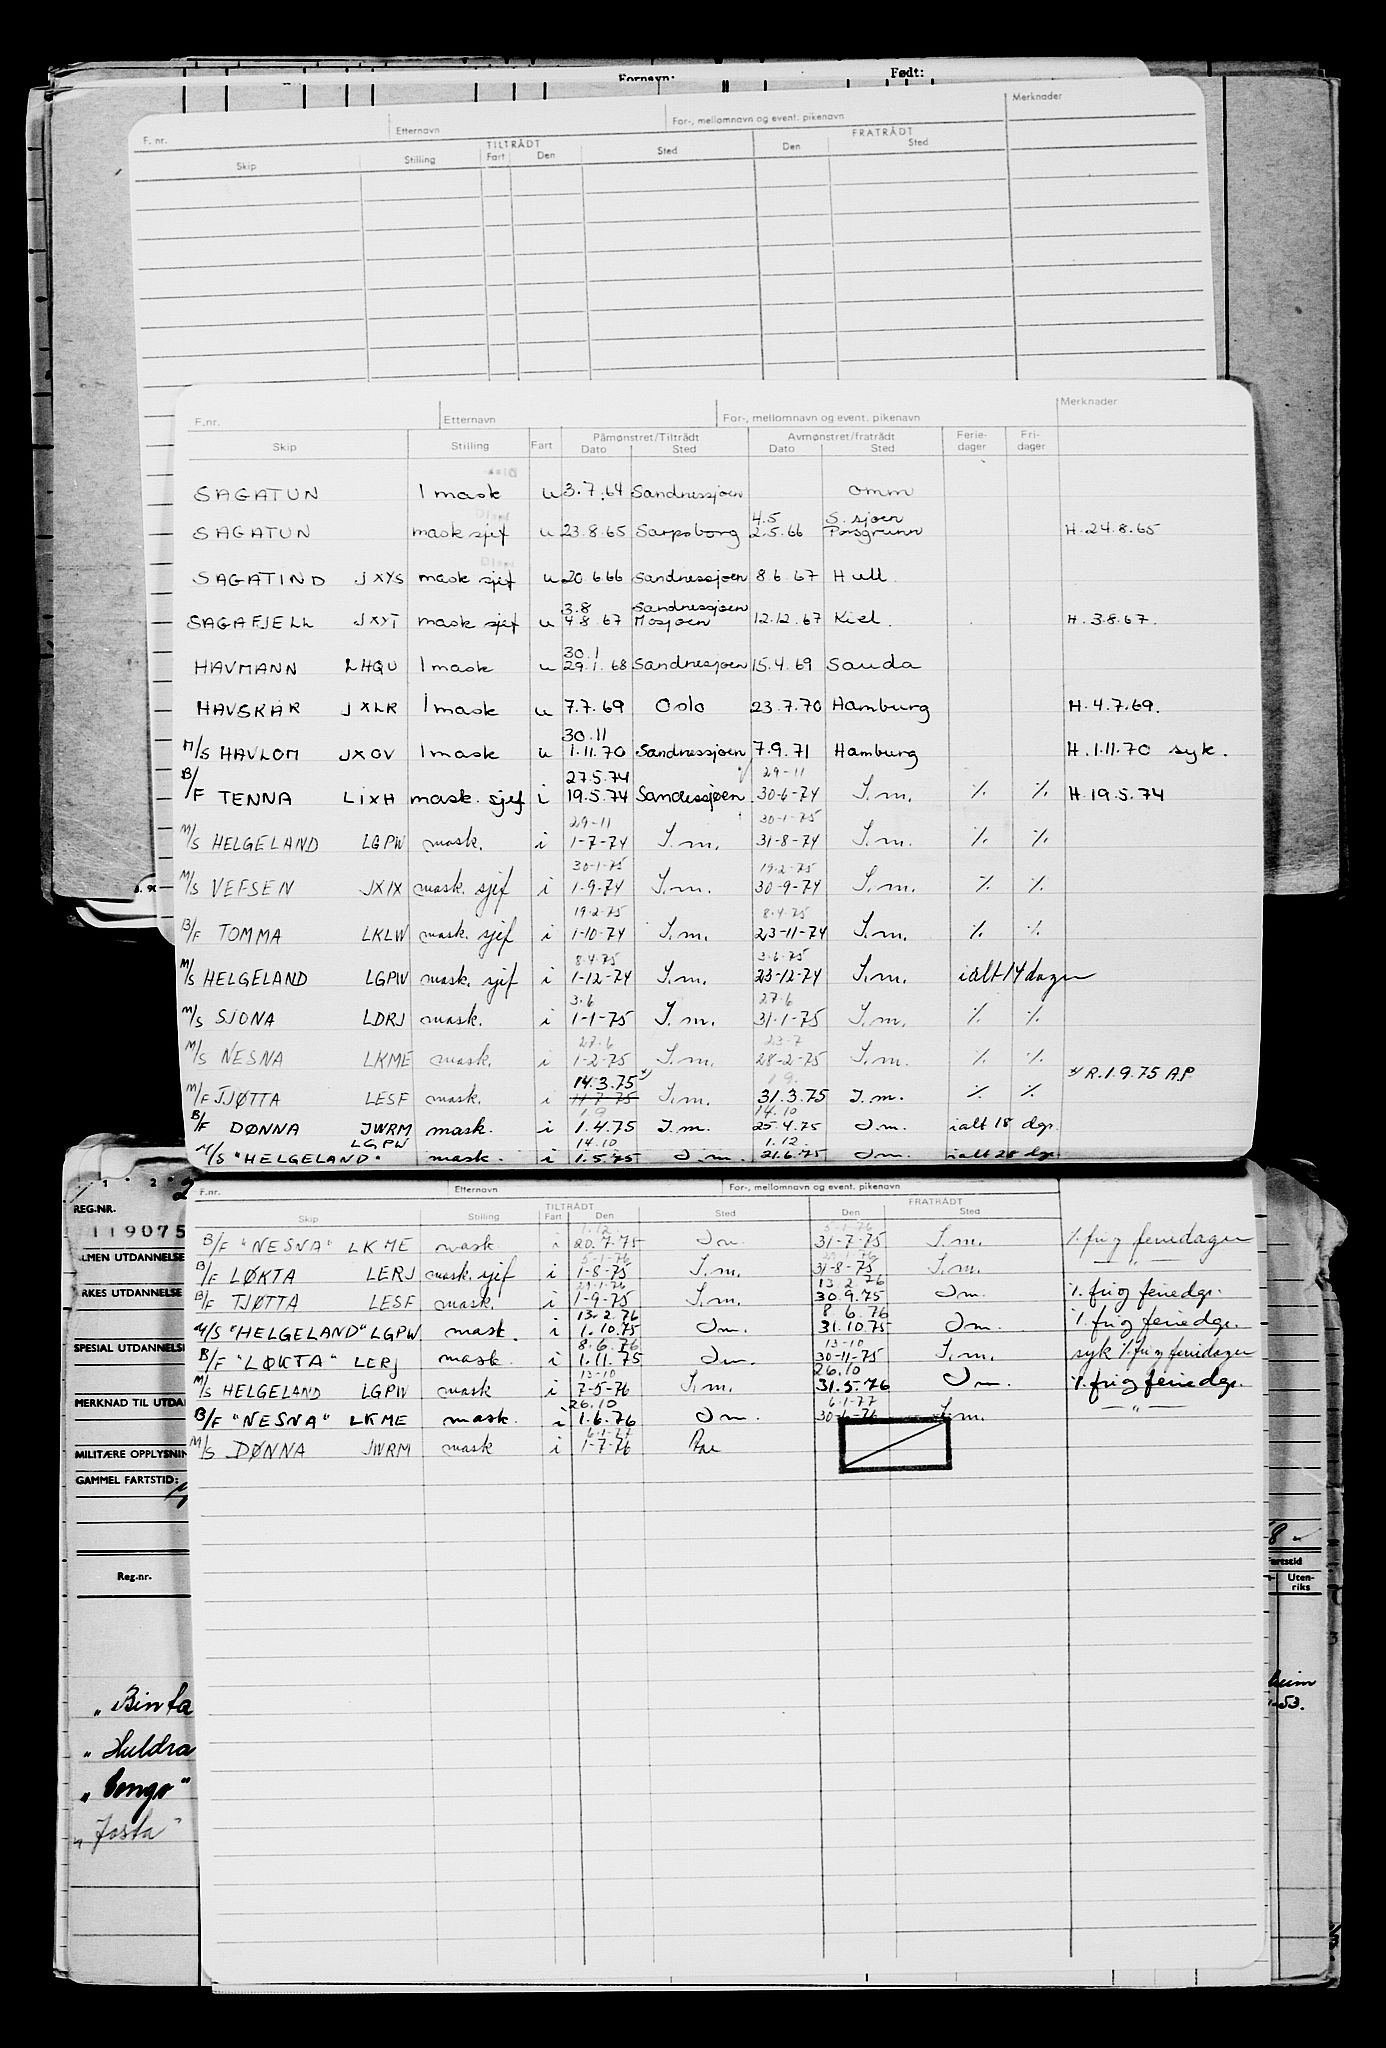 Fornavn: Født:
F. nr. Etternavn For-, mellomnavn og event. pikenavn Merknader
TILTRÅDT FRATRÅDT
Skip Stilling Fart Den Sted Den Sted
F.nr. Etternavn For-, mellomnavn og event. pikenavn Merknader
Påmønstret/Tiltrådt Avmønstret/fratrådt Ferie- Fri-
Skip Stilling Fart Dato Sted Dato Sted dager dager
SAGATUN 1 mask u 3.7.64 Sandnessjøen omm
4.5 S. sjøen
SAGATUN mask sjef u 23.8.65 Sarpsborg 2.5.66 Porsgrunn H. 24.8.65
SAGATIND JXYS mask sjef u 20.6.66 Sandnessjøen 8.6.67 Hull
3.8 Sandnessjøen
SAGAFJELL JXYT mask sjef u 4.8.67 Mosjøen 12.12.67 Kiel. H. 3.8.67.
30.1
HAVMANN LHQU 1 mask u 29.1.68 Sandnessjøen 15.4.69 Sauda
HAVSKÅR JXLR 1 mask u 7.7.69 Oslo 23.7.70 Hamburg H. 4.7.69.
30.11
M/S HAVLOM JXOV 1 mask u 1.11.70 Sandnessjøen 7.9.71 Hamburg H. 1.11.70 syk.
27.5.74 29-11
B/F TENNA LIXH mask. sjef i 19.5.74 Sandessjøen 30-6-74 S.m. % % H. 19.5.74
29-11 30-1-75
M/S HELGELAND LGPW mask. i 1-7-74 S.m. 31-8-74 S.m. % %
30-1-75 19-2-75
M/S VEFSEN JXIX mask. sjef i 1-9-74 S.m. 30-9-74 S.m. % %
19-2-75 8-4-75
B/F TOMMA LKLW mask. sjef i 1-10-74 S.m. 23-11-74 S.m. % %
8.4.75 3-6-75
M/S HELGELAND LGPW mask. sjef i 1-12-74 S.m. 23-12-74 S.m. ialt 14 dager
3.6 27.6
M/S SJONA LDRJ mask. i 1-1-75 S.m. 31-1-75 S.m. % %
27.6 23-7
M/S NESNA LKME mask. i 1-2-75 S.m. 28-2-75 S.m. % %
14.3.75 */ */ R.1.9.75 A.P.
M/F TJØTTA LESF mask. i S.m. 31.3.75 S.m. % %
1.9 14.10
B/F DØNNA JWRM mask. i 1.4.75 S.m. 25.4.75 S.m. ialt 18 dgr
LGPW 14.10 1.12
M/S "HELGELAND" mask. i 1.5.75 S.m. 21.6.75 S.m. ialt 28 dgr
REG.NR.
119075
F.nr. Etternavn For-, mellomnavn og event. pikenavn
TILTRÅDT FRATRÅDT
Skip Stilling Fart Den Sted Den Sted
1.12. 5-1-76
B/F "NESNA" LKME mask i 20.7.75 S.m. 31-7-75 S.m. % fri og feriedager
B/F LØKTA LERJ mask. sjef i 1-8-75 S.m. 31-8-75 S.m. — " —
13.2.76
B/F TJØTTA LESF mask. i 1-9-75 S.m. 30.9.75 S.m. % fri og feriedgr.
13.2.76 8.6.76
M/S "HELGELAND" LGPW mask. i 1.10.75 S.m. 31.10.75 S.m. % fri og feriedgr.
8.6.76 13-10
B/F "LØKTA" LERJ mask. i 1.11.75 S.m. 30-11-75 S.m. syk % fri og feriedager
13-10 26.10
M/S HELGELAND LGPW mask i 7-5-76 S.m. 31.5.76 S.m. % fri og feriedgr.
26.10 6-1-77
B/F "NESNA" LKME mask. i 1.6.76 S.m. 30-6-76 S.m. — " —
6-1-77
M/S DØNNA JWRM mask i 1-7-76
ALMEN UTDANNELSE
YRKES UTDANNELSE
SPESIAL UTDANNELSE
MERKNAD TIL UTDA
MILITÆRE OPPLYSNIN
GAMMEL FARTSTID:
Reg.nr.
Fartstid
Uten-
riks
"Binta
"Huldra
"Congo"
"Josta"
53.